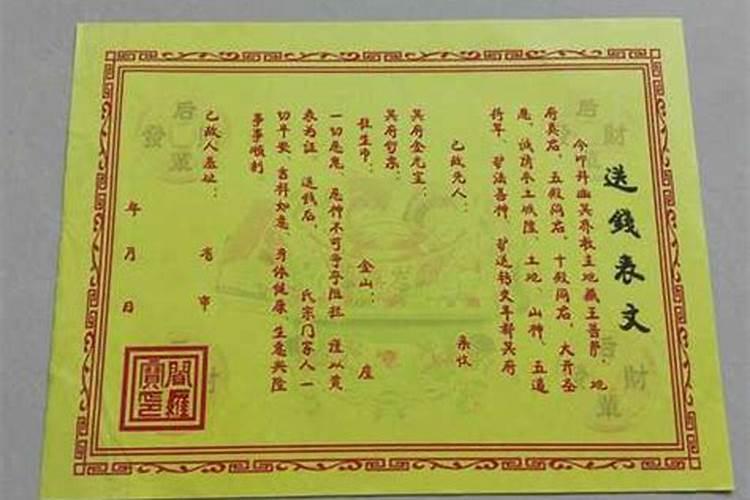 送錢表文
今叩拜幽冥界教主地藏王菩薩、地
府真君、五殿阎君、十殿阎君、大齐圣
恩、诚請本土城隍、土地、山神、五道
将军、护法善神、护送钱文等部冥府
己故先人: 亲收
冥府金元宝:
冥府哲票:
壮生币: 金山: 座
一切恶鬼、厄神不可争夺阻拦、谨以黄
表为证、送钱后、 氏宗门家人一
切平安、吉祥如意、身体健康、生意兴隆
事事顺利
己故人墓址: 省 市
年 月 日
閻羅寶印
后
發 財
單
后
發 財
單
后
發 財
單
財